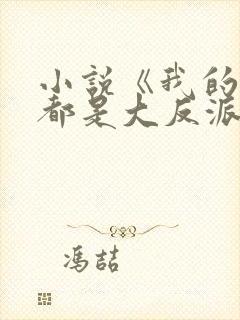 小说《我的
都是大反派
冯喆